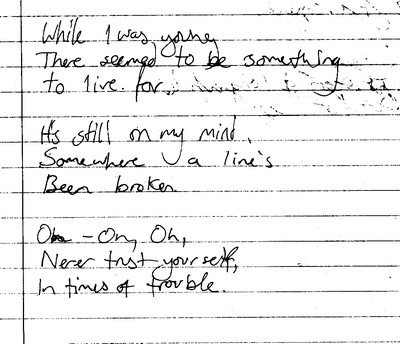 While I was young
There seemed to be something
to live for.
It's still on my mind,
Somewhere a line's
Been broken.
Oh - Oh, Oh,
Never trust yourself,
In times of trouble.